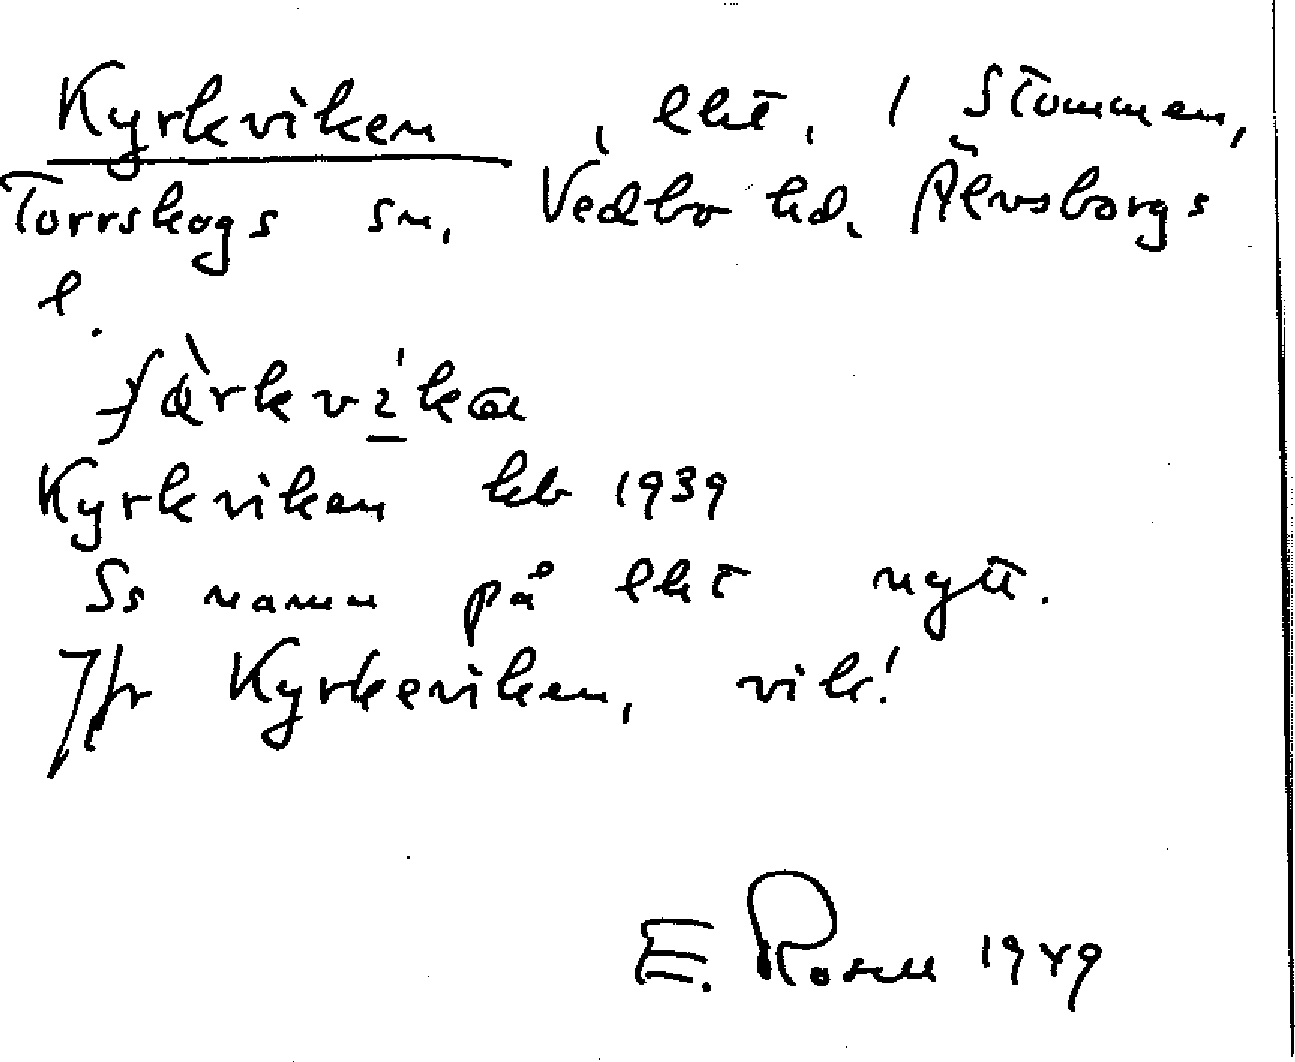 Kyrkviken, lht, 1 Stommen,
Torrskogs sn, Vedbo hd, Älvsborgs
l.
Kyrkviken kb 1939
Ss namn på lht nytt.
Jfr Kyrkeviken, vik!
E. Rosell 1949